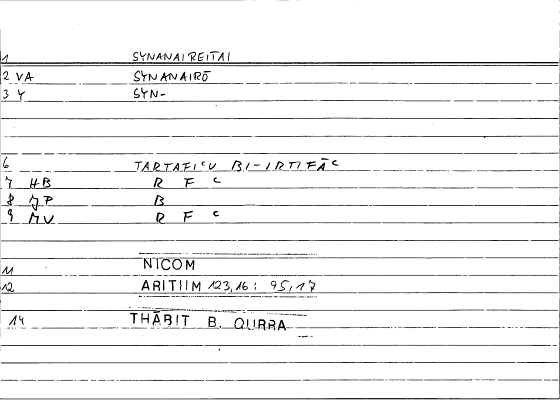 1 SYNANAIREITAI
2 VA SYNANAIRŌ
3 Y SYN-
6 TARTAFIᶜU BI-IRTIFĀᶜ
7 HB R F ᶜ
8 JP B
9 MV R F ᶜ
11 NICOM
12 ARITIIM 123,16 : 95,17
14 THĀBIT B. QURRA